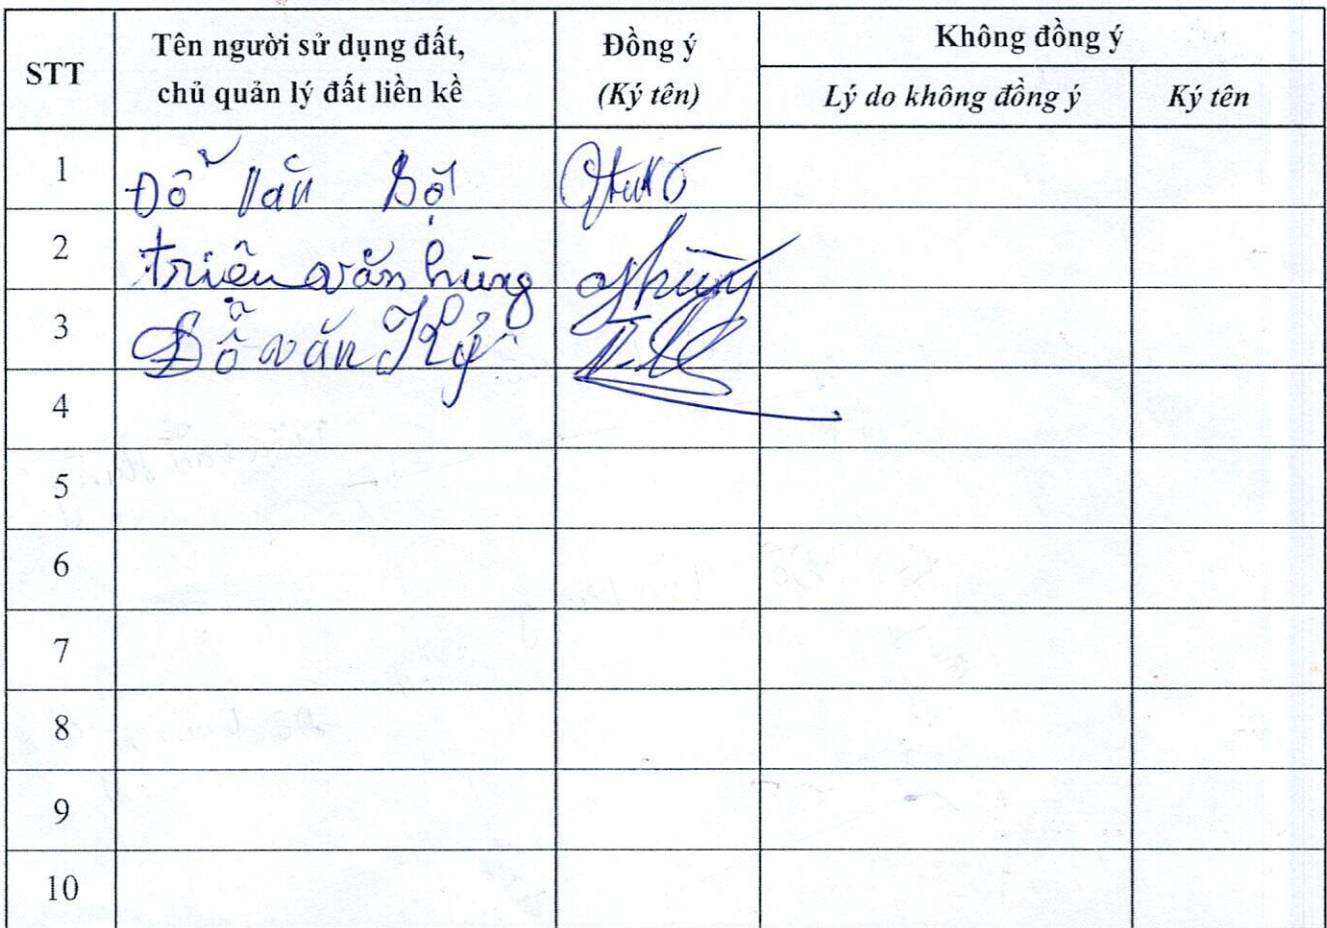 STT Tên người sử dụng đất, chủ quản lý đất liền kề Đồng ý (Ký tên) Không đồng ý
Lý do không đồng ý Ký tên
1 Đỗ Văn Bột
2 triệu văn hùng hùng
3 Đỗ văn Kỷ
4
5
6
7
8
9
10